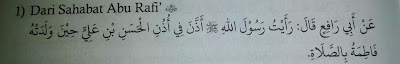 1) Dari Sahabat Abu Rafi' ﷺ
عَنْ أَبِي رَافِعٍ قَالَ: رَأَيْتُ رَسُوْلَ اللهِ ﷺ أَذَّنَ فِي أُذُنِ الْحَسَنِ بْنِ عَلِيٍّ حِيْنَ وَلَدَتْهُ
فَاطِمَةُ بِالصَّلَاةِ.